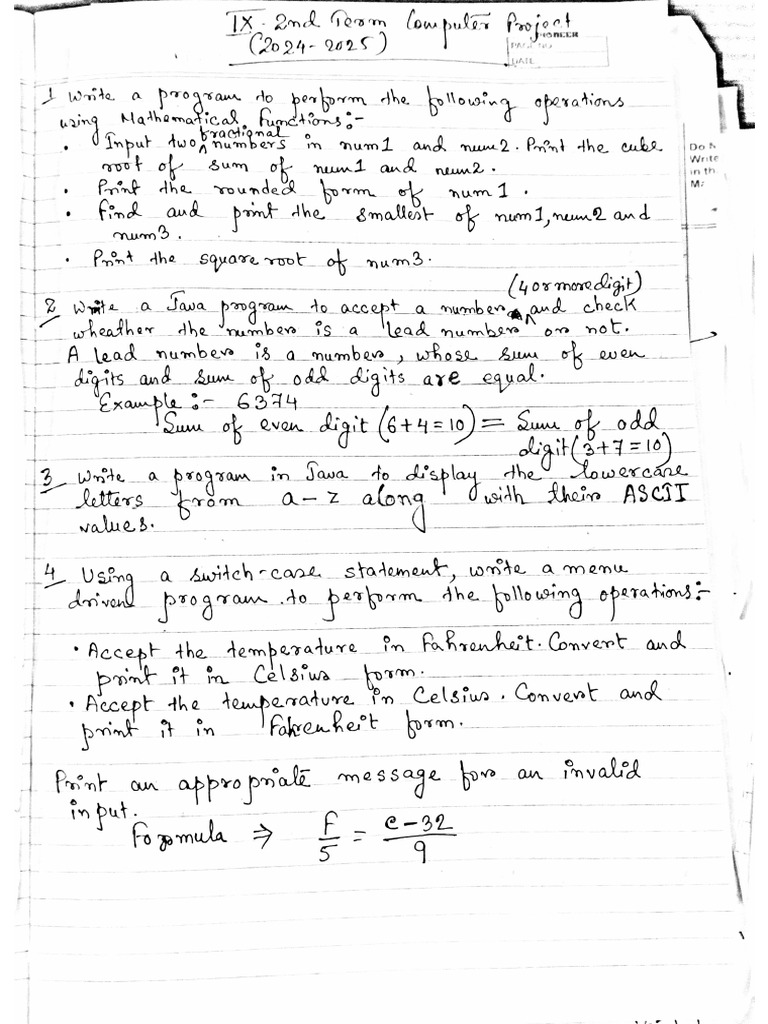 IX - 2nd Term Computer Project
(2024-2025)
PAGE NO
DATE
1 Write a program to perform the following operations
using Mathematical Functions:-
• Input two fractional numbers in num1 and num2. Print the cube
root of sum of num1 and num2.
• Print the rounded form of num1.
• Find and print the smallest of num1, num2 and
num3.
• Print the square root of num3.
Do N
Write
in th
(4 or more digit)
2 Write a Java program to accept a number and check
wheather the number is a lead number or not.
A lead number is a number, whose sum of even
digits and sum of odd digits are equal.
Example:- 6374
Sum of even digit (6+4=10) = Sum of odd
digit (3+7=10)
3 Write a program in Java to display the lowercase
letters from a-z along with their ASCII
values.
4 Using a switch-case statement, write a menu
driven program to perform the following operations:-
• Accept the temperature in Fahrenheit. Convert and
print it in Celsius form.
• Accept the temperature in Celsius. Convert and
print it in Fahrenheit form.
Print an appropriate message for an invalid
input.
Formula ⇒ F/5 = c-32/9